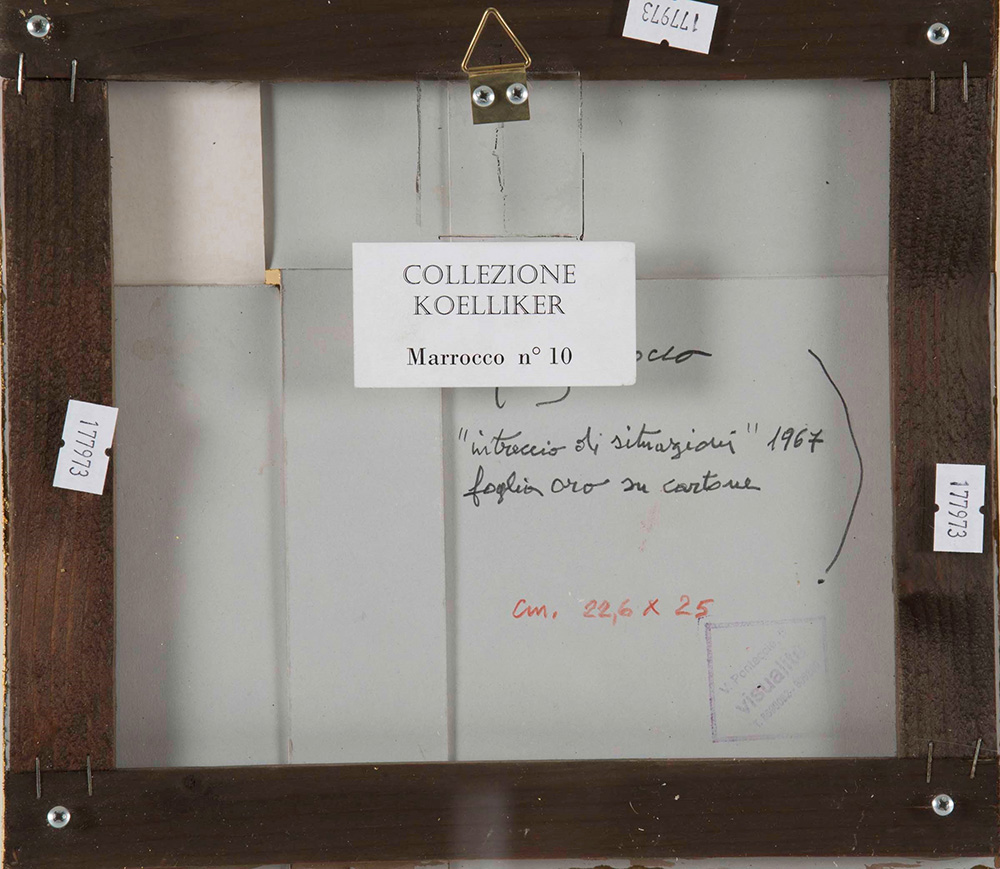 177973
COLLEZIONE
KOELLIKER
Marrocco n° 10
occo
"intreccio di situazioni" 1967
foglia oro su cartone
177973
177973
cm. 22,6 x 25
V. Pontaccio
visualità